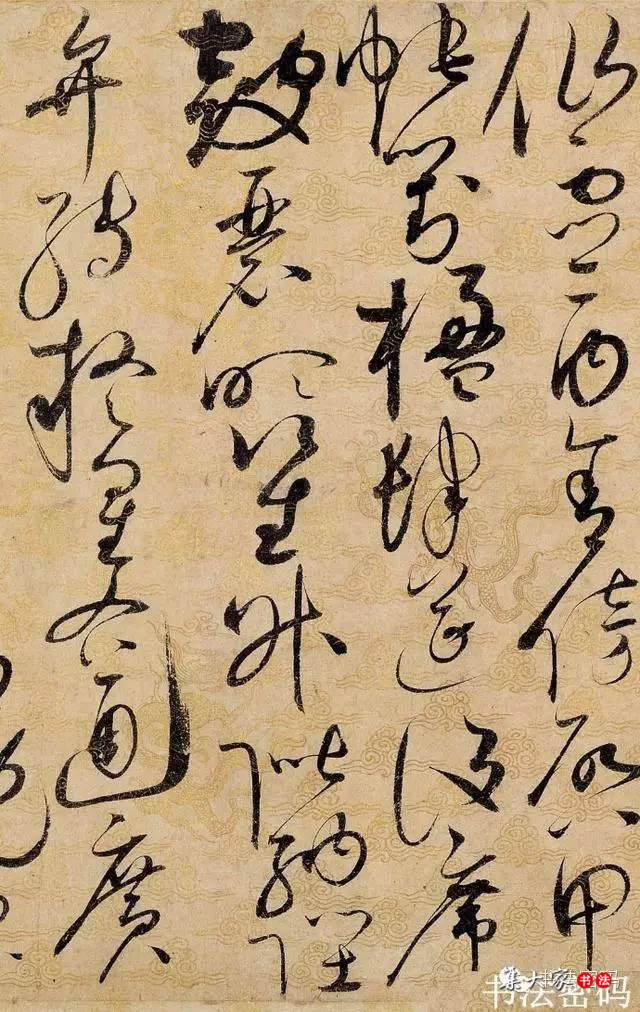 仙靈丙舍傍啓甲
帳對楹肆筵設席
鼓瑟吹笙升階納陛
弁轉疑星右通廣
集大家 书法
书法密码